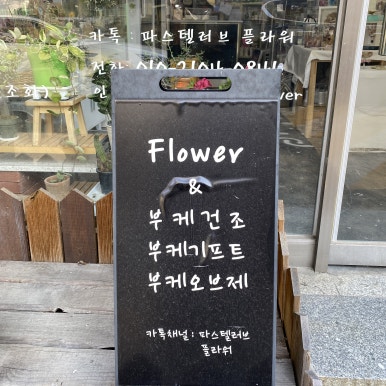 카톡 : 파스텔러브 플라워
전화
조화)
인
wer
Flower
&
부케건조
부케기프트
부케오브제
카톡채널 : 파스텔러브
플라워